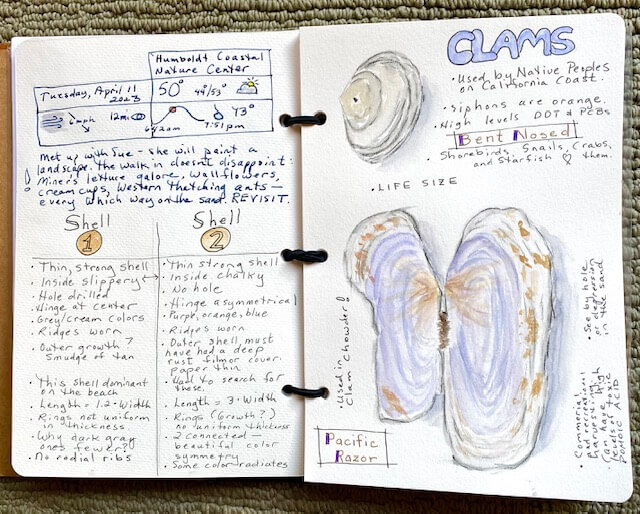 Humboldt Coastal
Nature Center
Tuesday, April 11
2023
50° 44°/53°
mph 12mi 73°
6:42am 7:51pm
Met up with Sue - she will paint a
landscape. The walk in doesn't disappoint:
Miner's lettuce galore, Wallflowers,
cream cups, Western Thatching ants -
every which way on the sand. REVISIT.
Shell
1
• Thin, strong shell
• Inside slippery
• Hole drilled
• Hinge at center
• Grey/cream colors
• Ridges worn
• Outer growth?
Smudge of tan
• This shell dominant
on the beach
• Length = 1.2 · Width
• Rings not uniform
in thickness
• Why dark gray
ones fewer?
• No radial ribs
Shell
2
• Thin strong shell
• Inside chalky
• No hole
• Hinge asymmetrical
• Purple, orange, blue
• Ridges worn
• Outer shell, must
have had a deep
rust film or cover.
paper thin
• Had to search for
these.
• Length = 3 · Width
• Rings (Growth?)
no uniform thickness
• 2 connected -
beautiful color
symmetry
• Some color radiates
CLAMS
• Used by Native Peoples
on California Coast.
• Siphons are orange.
• High levels DDT & PCBs
Bent Nosed
• Shorebirds, Snails, Crabs,
and Starfish ♡ them.
• LIFE SIZE
• Used in
Clam Chowder!
Pacific
Razor
• See by hole
or depression
in the sand
• Commercial
and recreational
harvest. High
levels of toxic
Domoic ACID